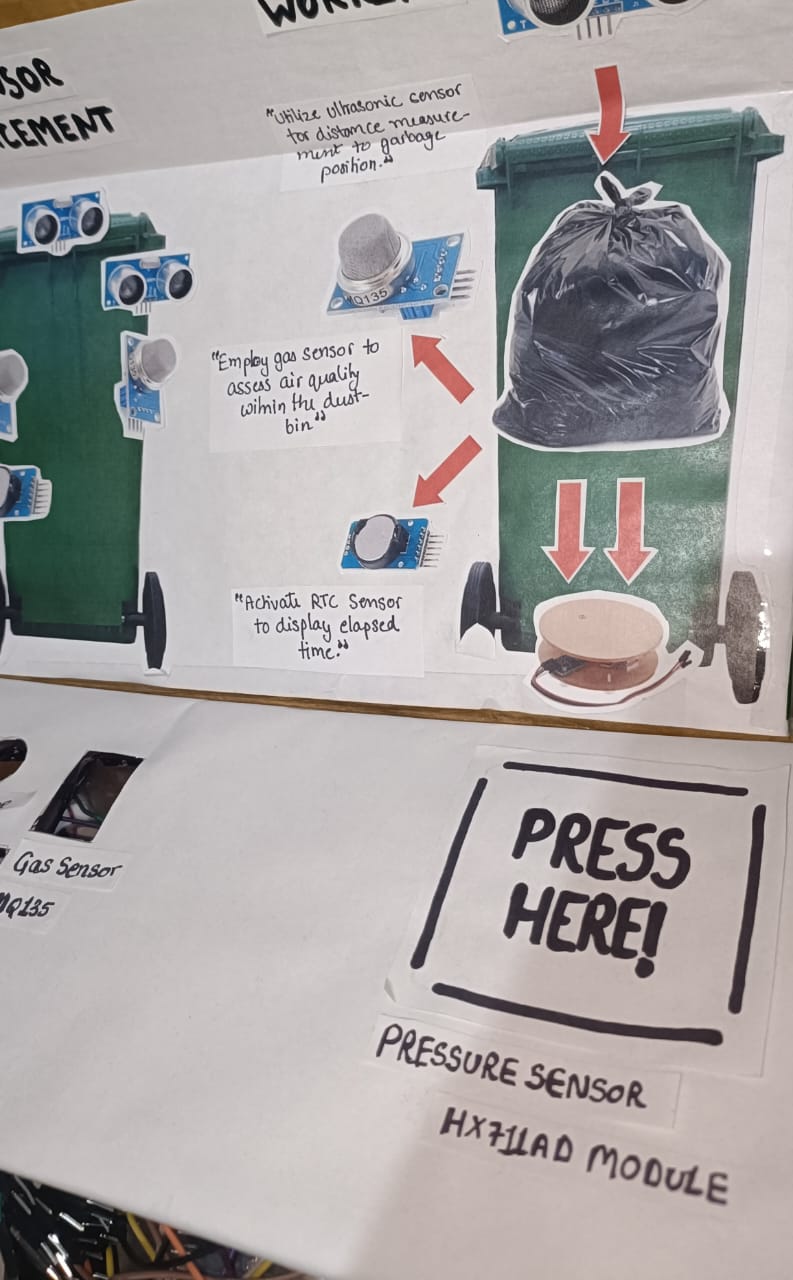 CEMENT
"Utilize ultrasonic censor
for distance measure-
ment to garbage
position."
MQ135
"Employ gas sensor to
assess air quality
within the dust-
bin"
"Activate RTC Sensor
to display elapsed
time."
Gas Sensor
MQ135
PRESS
HERE!
PRESSURE SENSOR
HX711AD MODULE